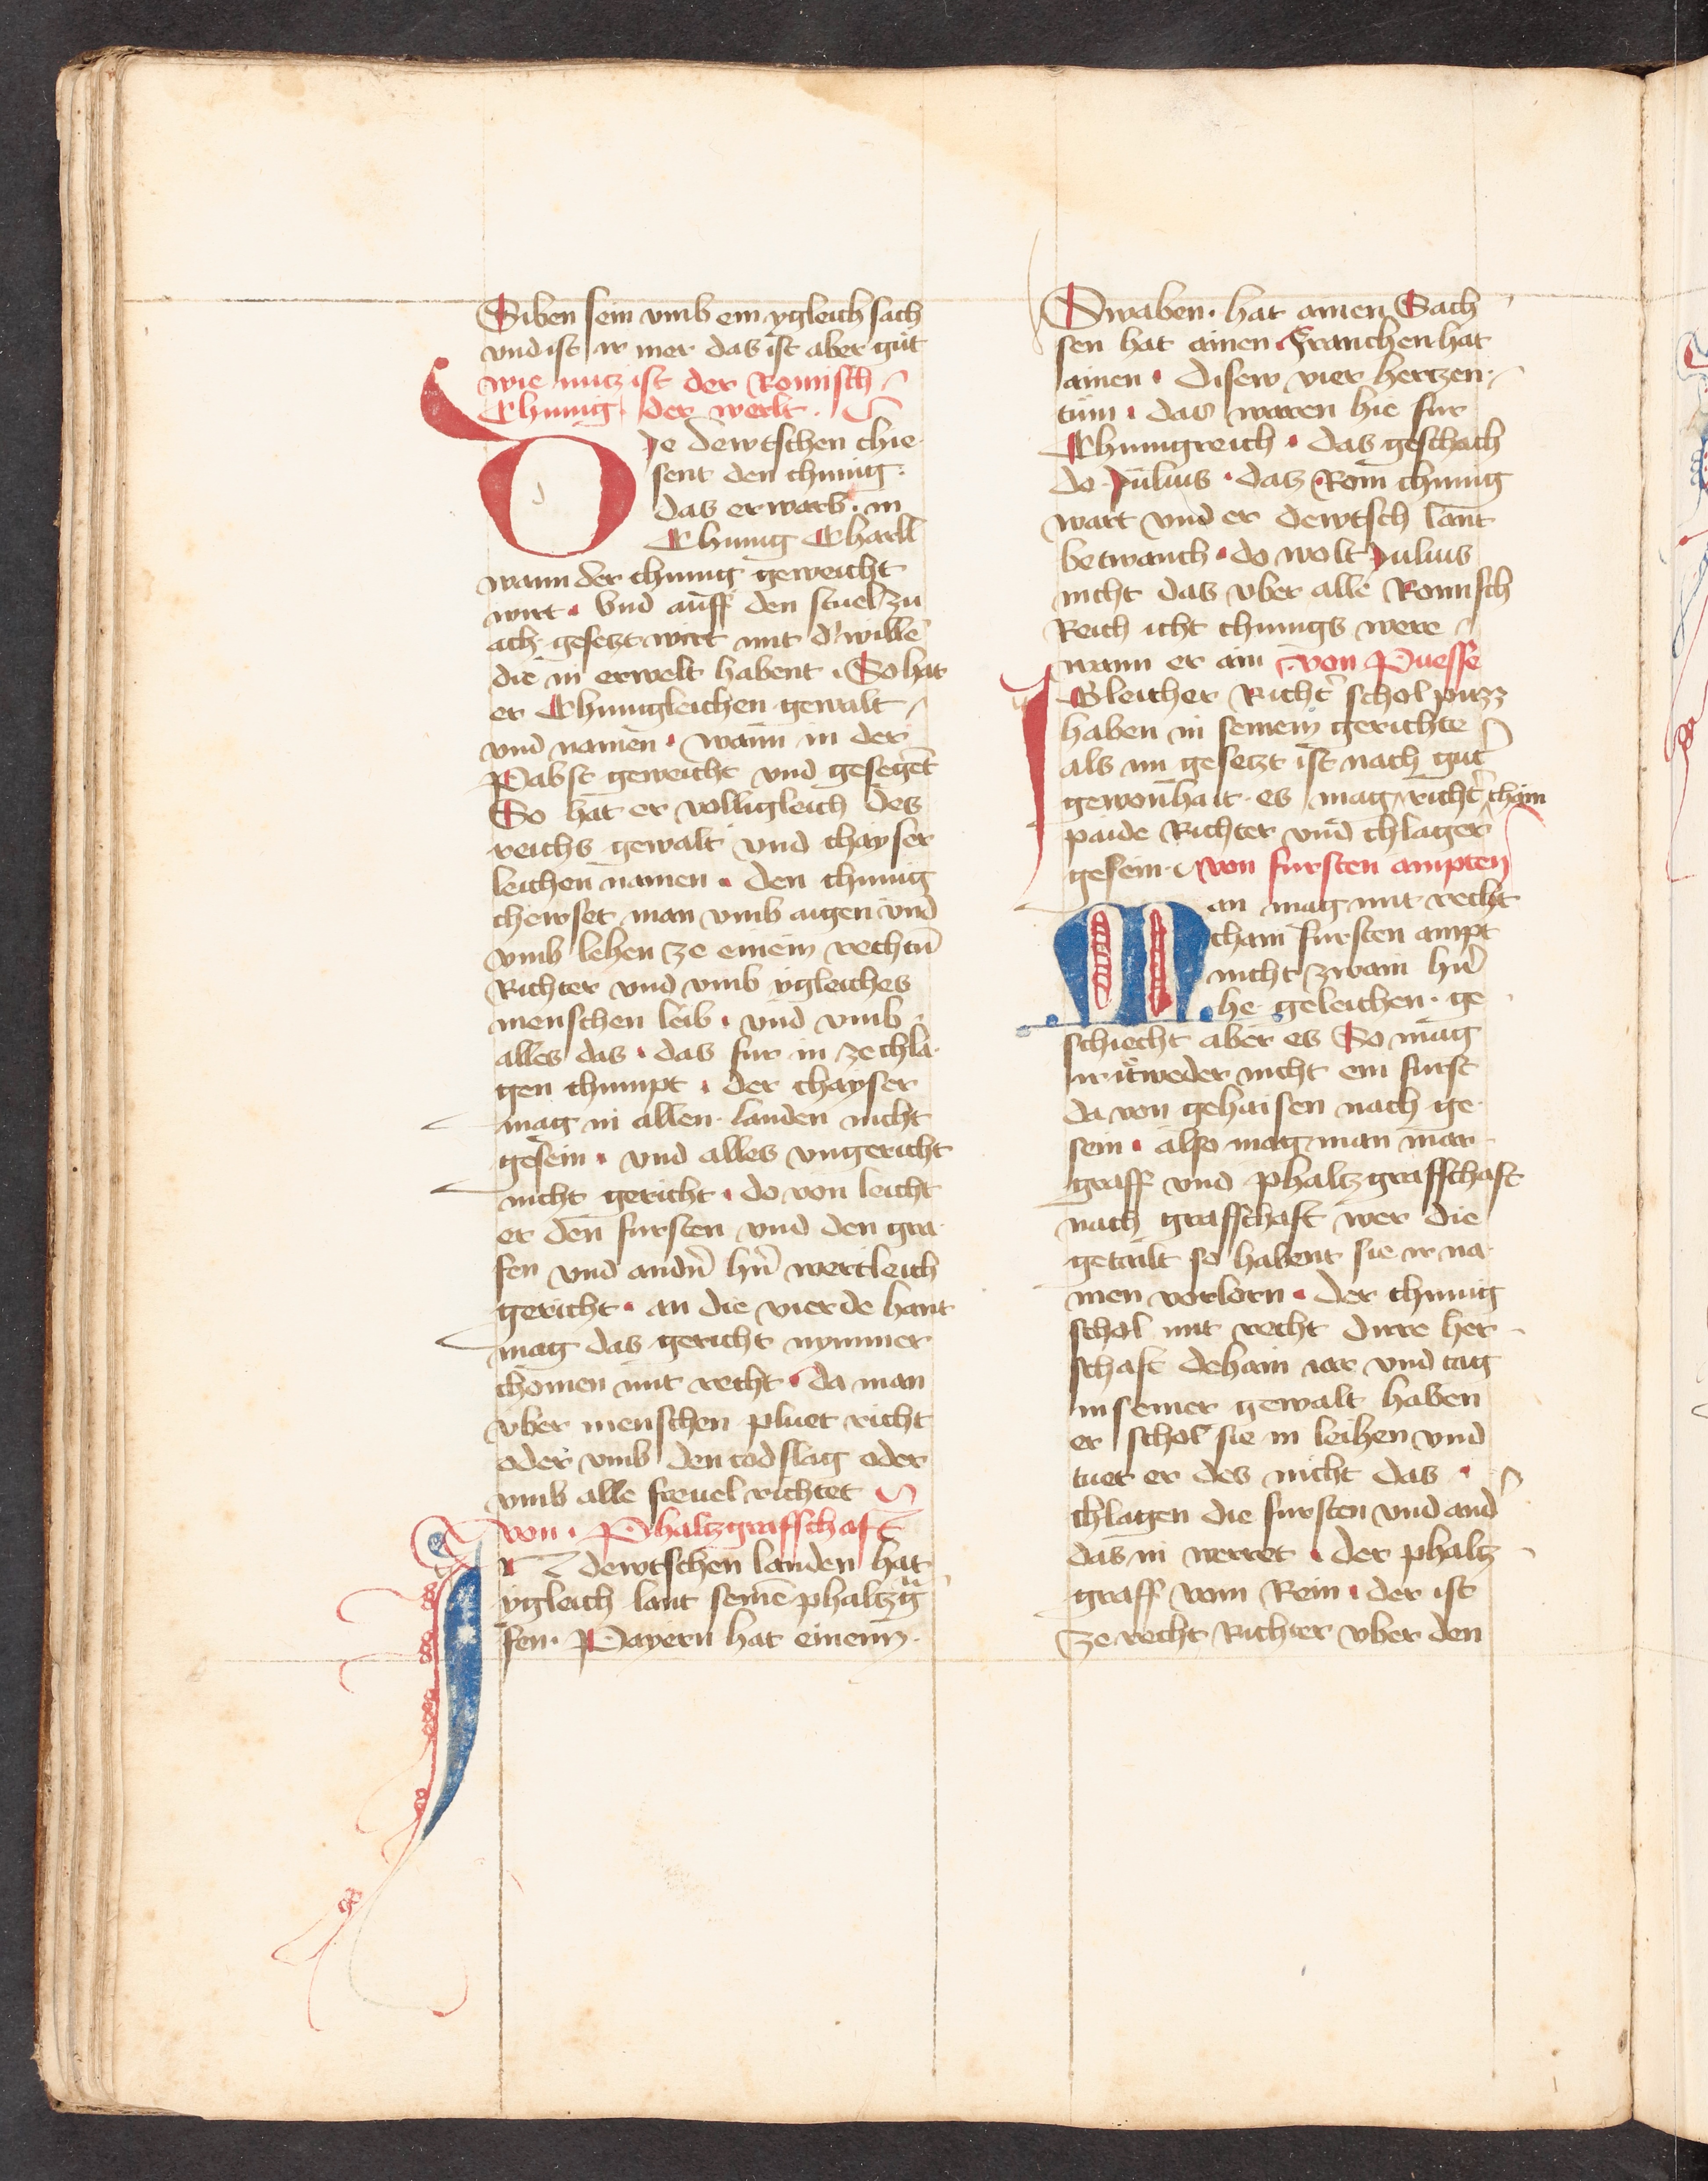 Siben sein vmb ein ygleich sach
vnd ist ir mer das ist aber gut
wie nutz ist der Romisch
Chunig der werlt.
Die dewtschen chie
sent den chunig.
das erwarb in
Chunig Charll
wann der chunig geweicht
wirt. Vnd auff den stuel zu
ach gesetzt wirt mit d' wille
die in erwelt habent. So hat
er Chunigleichen gewalt
vnd namen. wann in der
Pabst geweicht vnd gesegent
So hat er volligleich des
reichs gewalt vnd chayser
leichen namen. den chunig
chewset man vmb aigen vnd
vmb lehen ze einem rechtn̄
Richter vnd vmb ygleiches
menschen leib. vnd vmb
alles das. das fur in ze chla
gen chumpt. der chayser
mag in allen landen nicht
gesein. vnd alles vngericht
nicht gericht. do von leicht
er den fursten vnd den gra
fen vnd andn̄ hn̄ wertleich
gericht. an die vierde hant
mag das gericht nymmer
chomen mit recht. da man
vber menschen pluet richt
oder vmb den todslag oder
vmb alle freuel richtet
von. Phaltzgraffschaft
IN dewtschen landen hat
ygleich lant seinē phaltzg
fen. Payern hat einenn.
Swaben. hat ainen Sach
sen hat ainen Franchen hat
ainen. disew vier hertzen
tum. das waren hie fur
Chunigreich. das geschach
do Julius. das Rom chunig
wart vnd er dewtsch lant
betwanch. do wolt Julius
nicht das vber alle Romisch
Reich icht chunigs were
wann er ain. von Puesse
Igleicher Richt' schol puzz
haben in seinem gerichte
als im gesetzt ist nach gut'
gewonhait. es mag richt' chain
paide Richter vnd chlager
gesein. von fursten ampten
Man mag mit recht
chain fursten ampt
nicht zwain hn̄
he geleichen. ge
schiecht aber es So mag
ir ietweder nicht ein furst
da von gehaisen nach ge
sein. also mag man mar
graff vnd phaltzgraffschaft
nach graffschaft wer die
getailt so habent sie ir na
men verlorn. der chunig
schol mit recht dirre her
schaft dehain iar vnd tag
in seiner gewalt haben
er schol sie in leihen vnd
tuet er des nicht das
chlagen die fursten vnd and
das in werret. der phaltz
graff vom Rein. der ist
ze recht Richter vber den